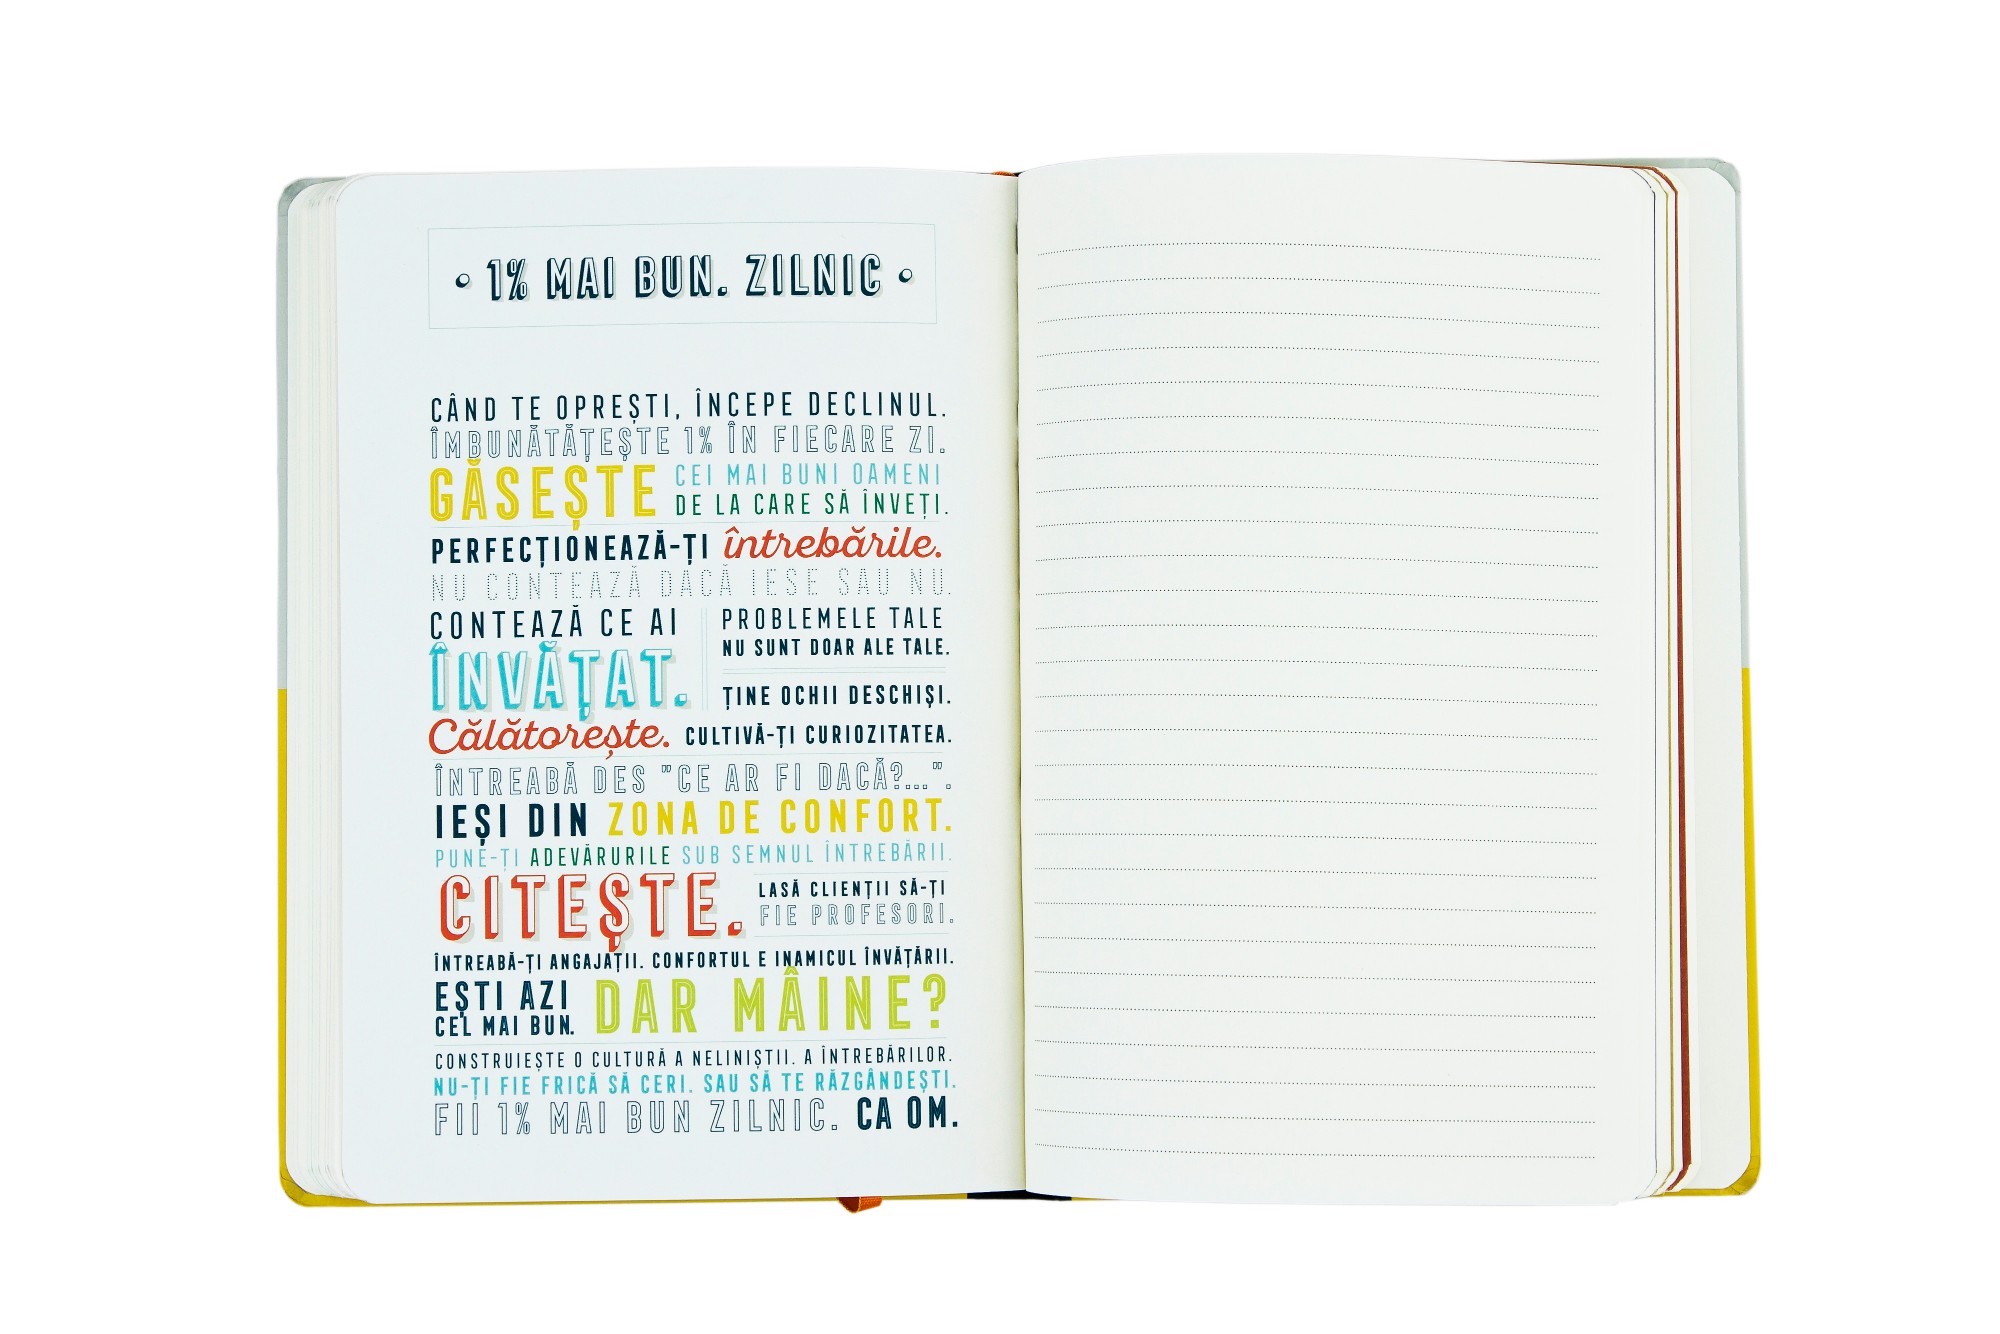 • 1% MAI BUN. ZILNIC •
CÂND TE OPREȘTI, ÎNCEPE DECLINUL.
ÎMBUNĂTĂȚEȘTE 1% ÎN FIECARE ZI.
GĂSEȘTE
CEI MAI BUNI OAMENI
DE LA CARE SĂ ÎNVEȚI.
PERFECȚIONEAZĂ-ȚI întrebările.
NU CONTEAZĂ DACĂ IESE SAU NU.
CONTEAZĂ CE AI
ÎNVĂȚAT.
PROBLEMELE TALE
NU SUNT DOAR ALE TALE.
ȚINE OCHII DESCHIȘI.
Călătorește. CULTIVĂ-ȚI CURIOZITATEA.
ÎNTREABĂ DES "CE AR FI DACĂ?...".
IEȘI DIN ZONA DE CONFORT.
PUNE-ȚI ADEVĂRURILE SUB SEMNUL ÎNTREBĂRII.
CITEȘTE.
LASĂ CLIENȚII SĂ-ȚI
FIE PROFESORI.
ÎNTREABĂ-ȚI ANGAJAȚII. CONFORTUL E INAMICUL ÎNVĂȚĂRII.
EȘTI AZI
CEL MAI BUN.
DAR MÂINE?
CONSTRUIEȘTE O CULTURĂ A NELINIȘTII. A ÎNTREBĂRILOR.
NU-ȚI FIE FRICĂ SĂ CERI. SAU SĂ TE RĂZGÂNDEȘTI.
FII 1% MAI BUN ZILNIC. CA OM.